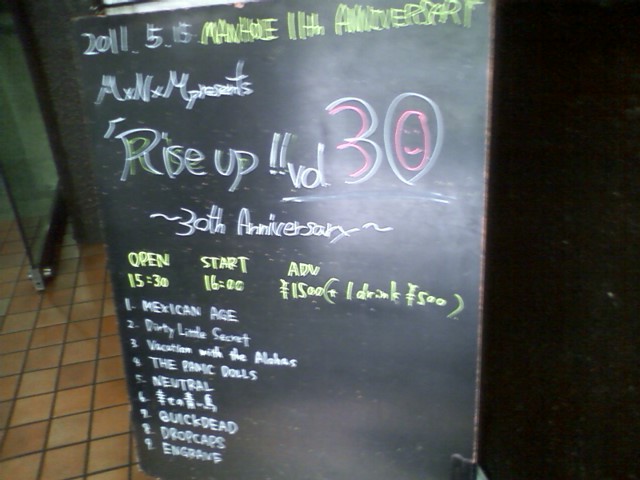 2011. 5.15 MANHOLE 11th ANNIVERSARY
MxNxM presents
「Rise up!! vol 30
～30th Anniversary～
OPEN START ADV
15:30 16:00 ¥1500(+1drink ¥500)
1. MEXICAN AGE
2. Dirty Little Secret
3. Vacation with the Alohas
4. THE PANIC DOLLS
5. NEUTRAL
6.
7. QUICKDEAD
8. DROPCAPS
9. ENGRAVE